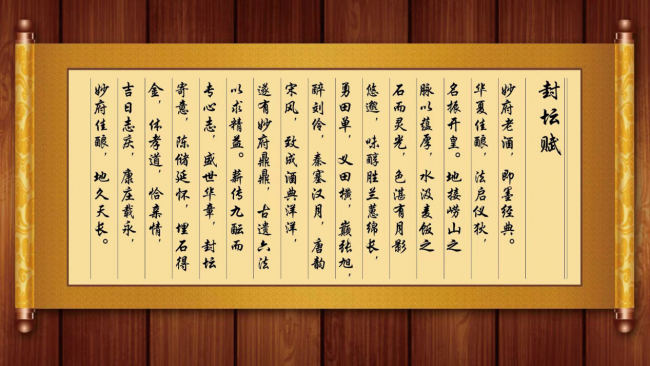 封坛赋
妙府老酒，即墨经典。
华夏佳酿，法启仪狄，
名振开皇。地接崂山之
脉以蕴厚，水汲麦饭之
石而灵光，色湛有月影
悠邈，味醇胜兰蕙绵长，
勇田单，义田横，巅张旭，
醉刘伶，秦塞汉月，唐韵
宋风，致成酒典洋洋，
遂有妙府鼎鼎，古遗六法
以求精益。薪传九酝而
专心志，盛世华章，封坛
寄意，陈储延怀，埋石得
金，休孝道，恰亲情，
吉日志庆，康庄载承，
妙府佳酿，地久天长。